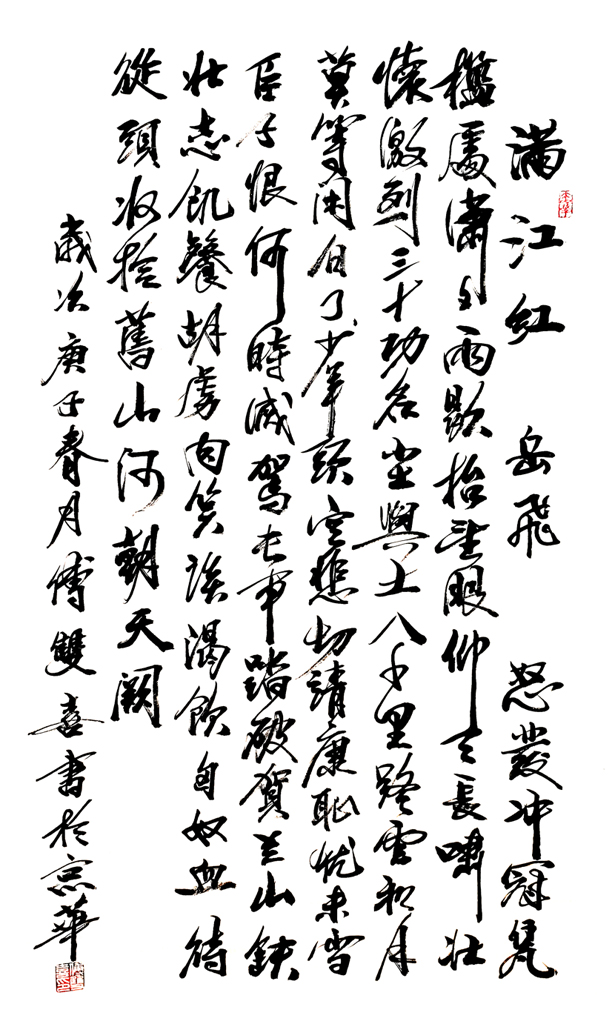 滿江紅 岳飛 怒發冲冠凭
檻處瀟々雨歇抬望眼仰天長嘯壯
懷激烈三十功名尘與土八千里路雲和月
莫等閑白了少年頭空悲切靖康恥犹未雪
臣子恨何時滅駕長車踏破賀兰山缺
壯志飢餐胡虜肉笑談渴飲匈奴血待
從頭收拾舊山河朝天闕
歲次庚子春月傅雙喜書於京華